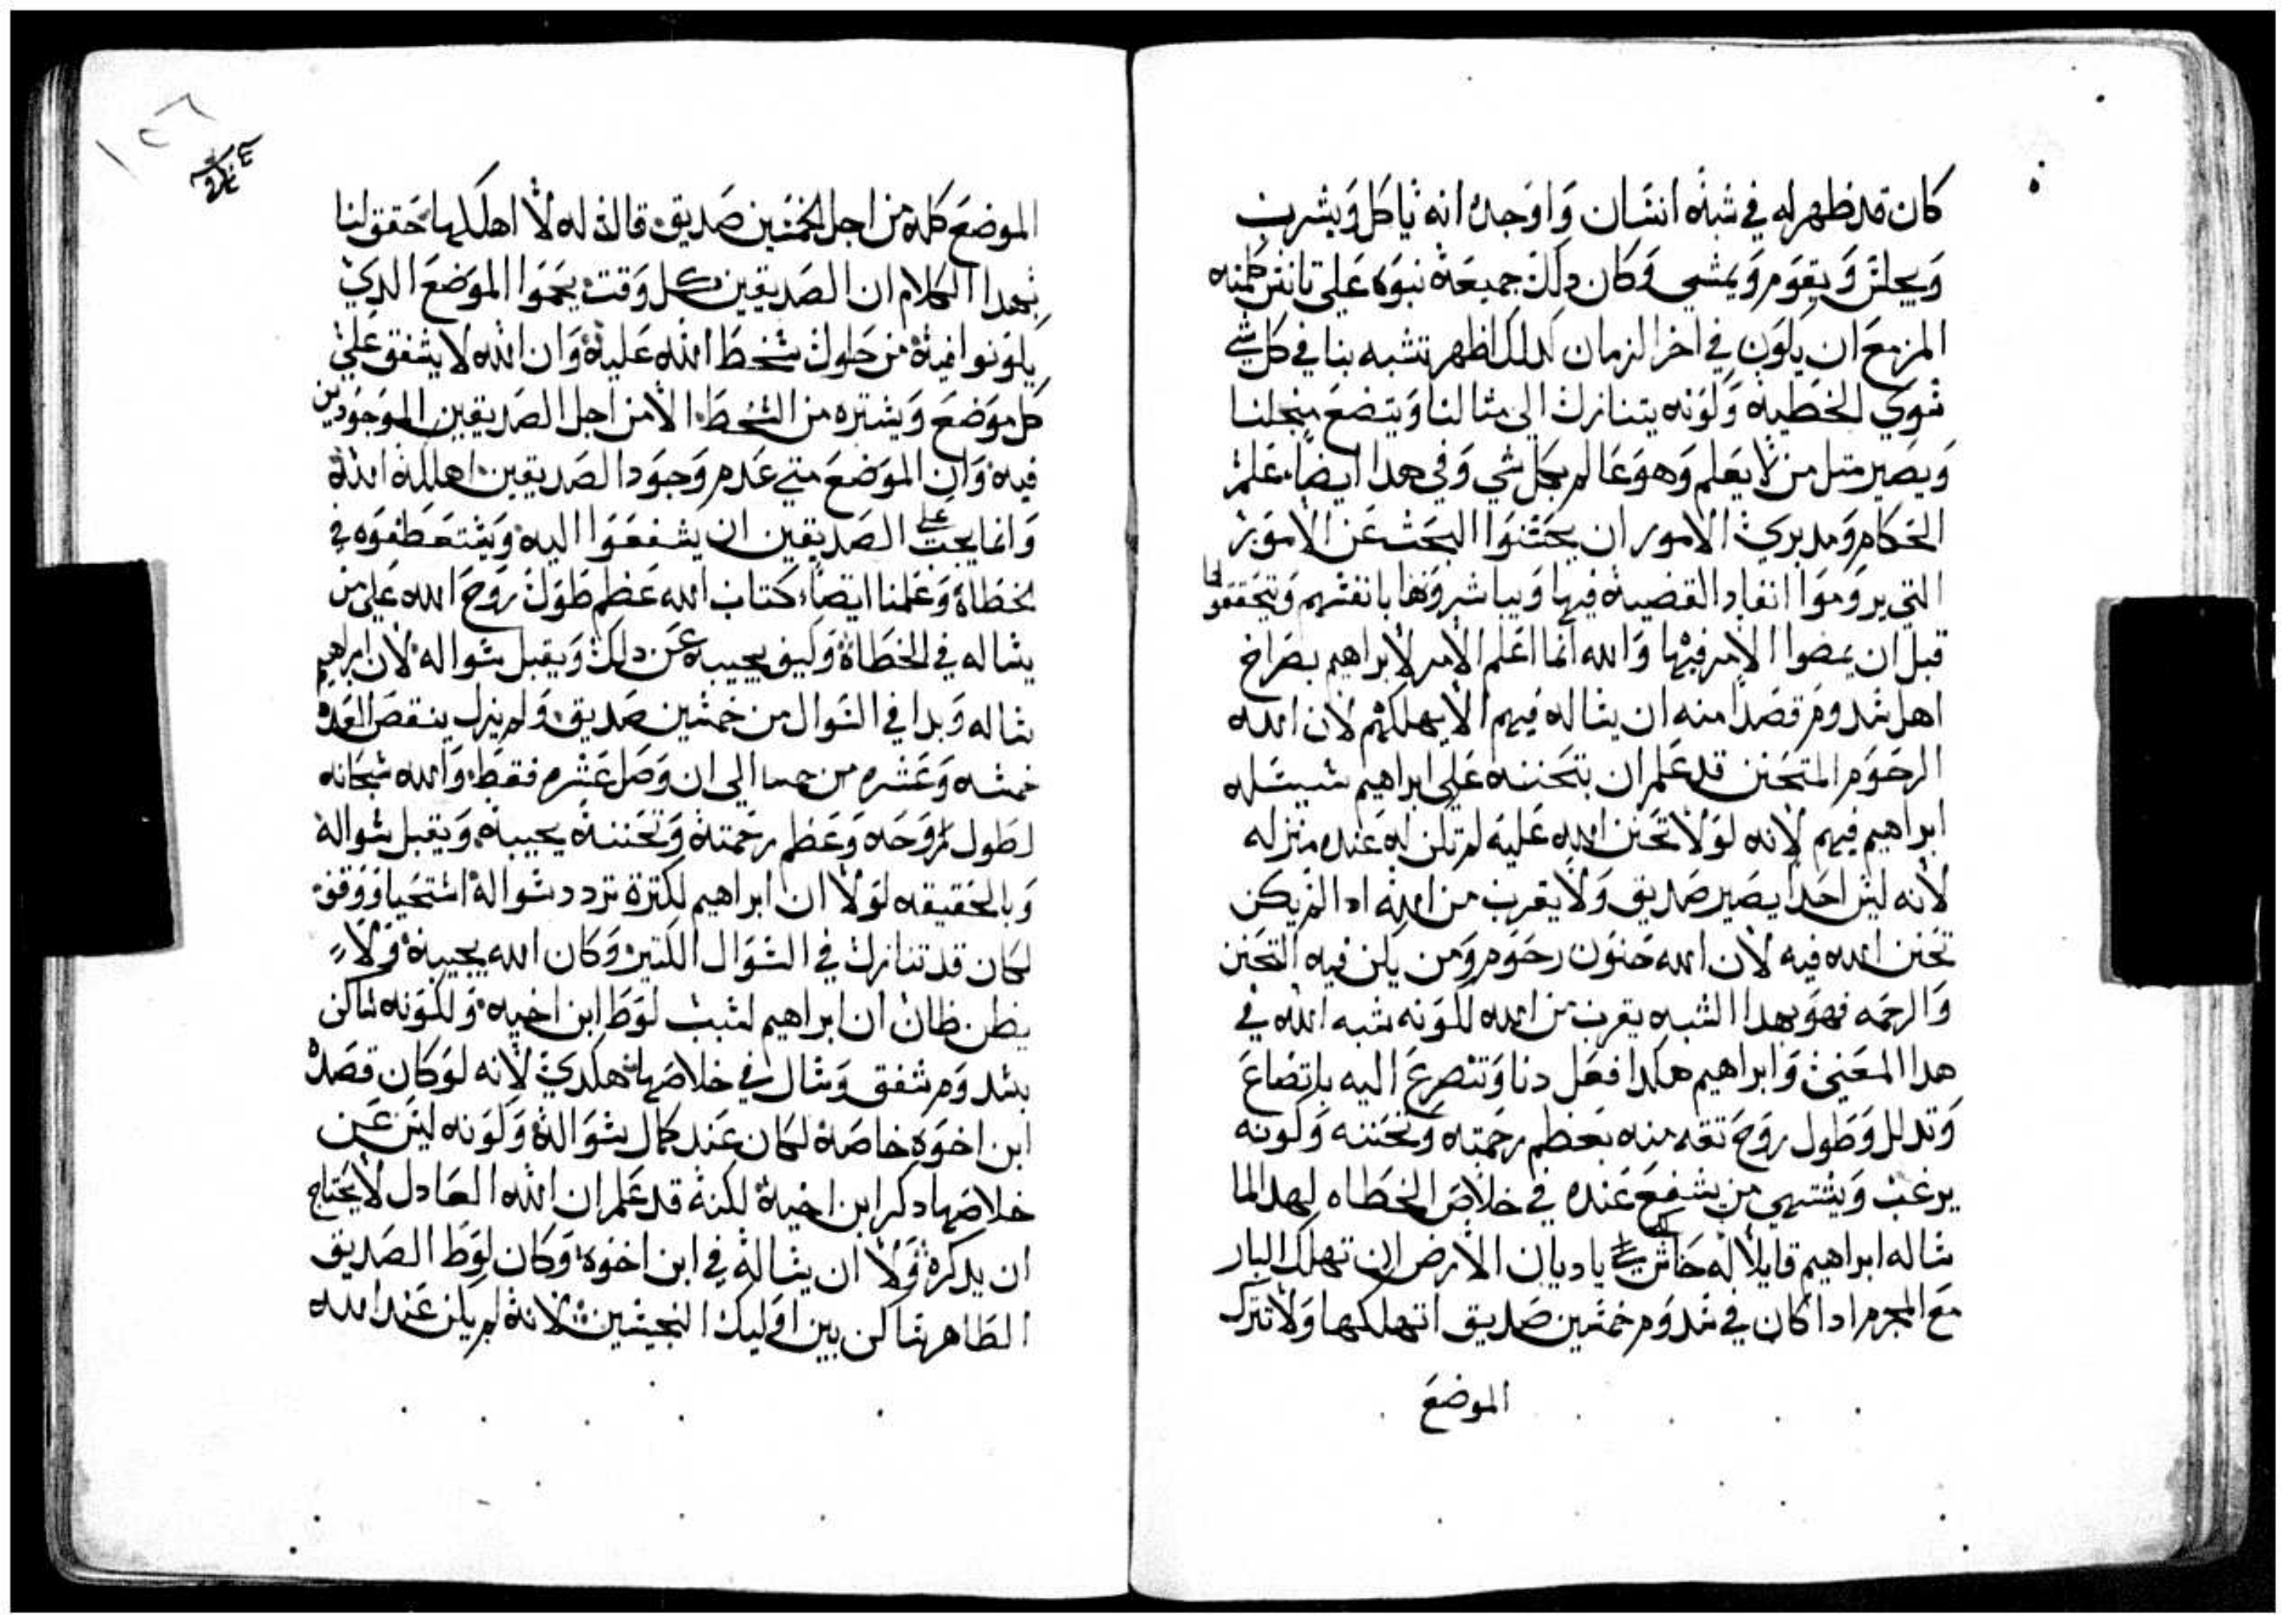 كان قد ظهر له في شبه انسان واوجده انه ياكل ويشرب
ويجلس ويقوم ويمشي وكان دلك جميعه نبوه علي تانس كلمته
المزمع ان يكون في اخر الزمان لدلك اظهر تشبه بنا في كل شي
سوي الخطيه وكونه يتنازل الي مثالنا ويتضع من اجلنا
ويصير متل من لا يعلم وهو عالم بكل شي وفي هدا ايضا علم
الحكام ومدبري الامور ان يحتنوا البحث عن الامور
التي يروموا انفاد القضيه فيها ويباشروها بانفسهم ويتحققوا
قبل ان يمضوا الامر فيها والله انما اعلم الامر لابراهيم بصراخ
اهل سدوم قصدا منه ان يساله فيهم الا يهلكهم لان الله
الرحوم المتحنن قد علم ان بتحننه علي ابراهيم سيسله
ابراهيم فيهم لانه لولا تحنن الله عليه لم تكن له عنده منزله
لانه ليس احدا يصير صديق ولا يقرب من الله ادا لم يكن
تحنن الله فيه لان الله حنون رحوم ومن يكن فيه التحنن
والرحمه فهو بهدا الشبه يقرب من الله لكونه شبه الله في
هدا المعني وابراهيم هكدا فعل دنا وتضرع اليه باتضاع
وتدلل وطول روح تقه منه بعظم رحمته وتحننه وكونه
يرغب ويشتهي من يشفع عنده في خلاص الخطاه لهدا لما
ساله ابراهيم قايلا له حاش لك يا ديان الارض ان تهلك البار
مع المجرم ادا كان في سدوم خمسين صديق اتهلكها ولا تترك
الموضع
الموضع كله من اجل الخمسين صديق قال له لا اهلكها حقق لنا
بهدا الكلام ان الصديقين كل وقت يحموا الموضع الدي
يكونوا فيه من حلول سخط الله عليه وان الله لا يشفق علي
كل موضع ويستره من السخط الا من اجل الصديقين الموجودين
فيه وان الموضع متي عدم وجود الصديقين اهلكه الله
وانما يجب علي الصديقين ان يشفعوا اليه ويستعطفوه في
الخطاه وعلمنا ايضا كتاب الله عظم طول روح الله علي من
يساله في الخطاه وكيف يجيبه عن دلك ويقبل سواله لان ابراهيم
ساله وبدا في السوال من خمسين صديق ولم يزل ينقص العده
خمسه وعشره الي ان وصل عشره فقط والله سبحانه
لطول روحه وعظم رحمته وتحننه يجيبه ويقبل سواله
وبالحقيقه لولا ان ابراهيم لكترة تردد سواله استحيا ووقف
لكان قد تنازل في السوال الكتير وكان الله يجيبه ولا
يظن ظان ان ابراهيم لسبب لوط ابن اخيه ولكونه ساكن
بسدوم شفق وسال في خلاصها هكدي لانه لو كان قصده
ابن اخوه خاصه لكان عند كمال سواله وكونه ليس عن
خلاصها دكر ابن اخيه لكنه قد علم ان الله العادل لا يحتاج
ان يدكره ولا ان يساله في ابن اخوه وكان لوط الصديق
الطاهر ساكن بين اوليك النجسين لانه لم يكن عند الله